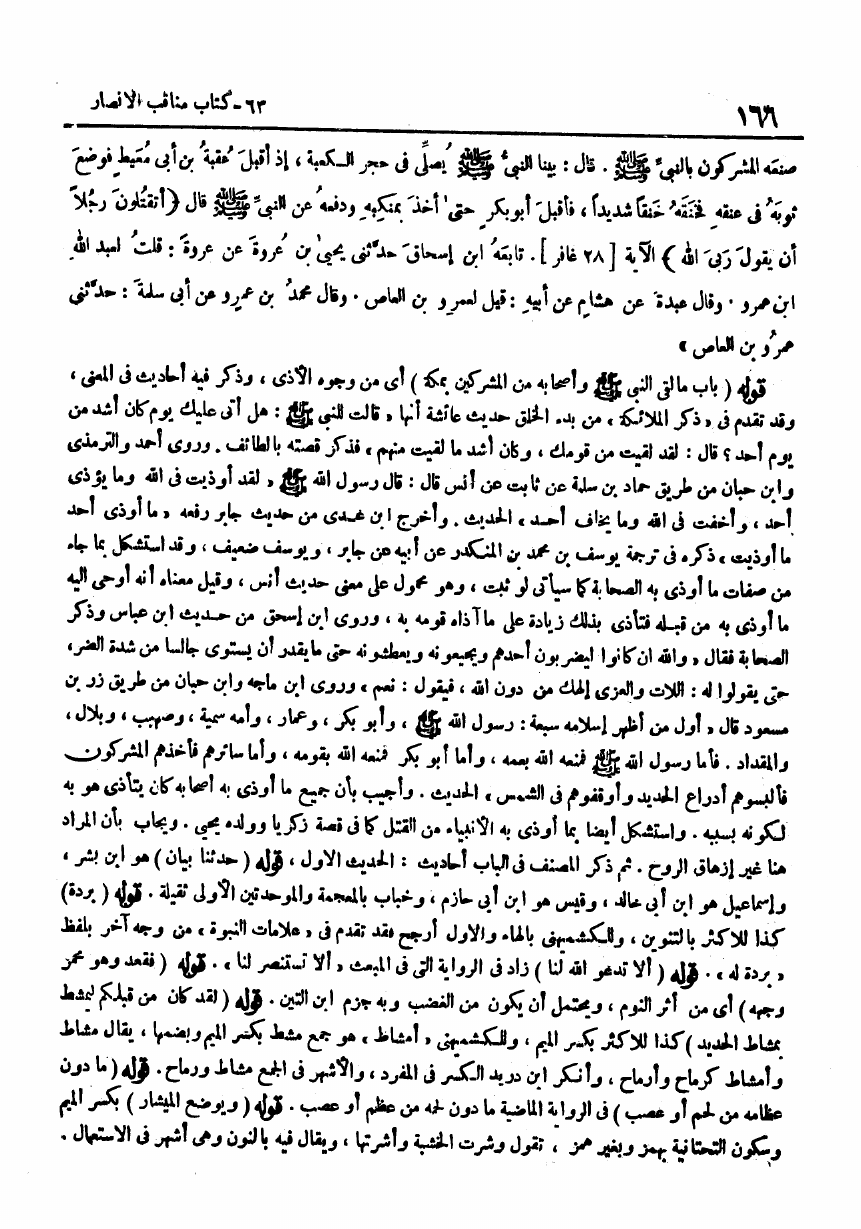 ١٦٦
٦٣ - كتاب مناقب الانصار
صنعَه المشركون بالنبيِّ ﷺ . قال : بينا النبيُّ ﷺ يُصلِّى فى حجر الكعبة ، إذ أقبلَ عُقبةُ بن أبى مُعَيطٍ فوضعَ
ثوبَهُ فى عنقهِ فخنَقَهُ خَنقاً شديداً ، فأقبلَ أبوبكرٍ حتى أخذَ بمنكبِهِ ودفعهُ عن النبيِّ ﷺ قال ﴿ أتقتُلونَ رجُلاً
أن يقولَ رَبىَ الله ﴾ الآية [ ٢٨ غافر ] . تابعَهُ ابن إسحاقَ حدَّثنى يحيىٰ بن عُروةَ عن عروةَ : قلتُ لعبد اللهِ
ابن عمرو . وقال عبدة عن هشامٍ عن أبيهِ : قيل لعمرِو بن العاص . وقال محمدُ بن عمرٍو عن أبى سلمةَ : حدَّثنى
عمرُو بن العاص »
قوله ( باب مالقى النبى ﷺ وأصحابه من المشركين بمكة ) أى من وجوه الأذى ، وذكر فيه أحاديث فى المعنى ،
وقد تقدم فى « ذكر الملائكة » من بدء الخلق حديث عائشة أنها « قالت للنبى ﷺ : هل أتى عليك يوم كان أشد من
يوم أحد ؟ قال : لقد لقيت من قومك ، وكان أشد ما لقيت منهم » فذكر قصته بالطائف . وروى أحمد والترمذى
وابن حبان من طريق حماد بن سلمة عن ثابت عن أنس قال : قال رسول الله ﷺ « لقد أوذيت فى الله وما يؤذى
أحد ، وأخفت فى الله وما يخاف أحد » الحديث . وأخرج ابن عدى من حديث جابر رفعه « ما أوذى أحد
ما أوذيت » ذكره فى ترجمة يوسف بن محمد بن المنكدر عن أبيه عن جابر ، ويوسف ضعيف ، وقد استشكل بما جاء
من صفات ما أوذى به الصحابة كما سيأتى لو ثبت ، وهو محمول على معنى حديث أنس ، وقيل معناه أنه أوحى اليه
ما أوذى به من قبله فتأذى بذلك زيادة على ما آذاه قومه به ، وروى ابن إسحق من حديث ابن عباس وذكر
الصحابة فقال « والله ان كانوا ليضربون أحدهم ويجيعونه ويعطشونه حتى ما يقدر أن يستوى جالسا من شدة الضر ،
حتى يقولوا له : اللات والعزى إلهك من دون الله ، فيقول : نعم » وروى ابن ماجه وابن حبان من طريق زر بن
مسعود قال « أول من أظهر إسلامه سبعة : رسول الله ﷺ ، وأبو بكر ، وعمار ، وأمه سمية ، وصهيب ، وبلال ،
والمقداد . فأما رسول الله ﷺ فمنعه الله بعمه ، وأما أبو بكر فمنعه الله بقومه ، وأما سائرهم فأخذهم المشركون
فألبسوهم أدراع الحديد وأوقفوهم فى الشمس » الحديث . وأجيب بأن جميع ما أوذى به أصحابه كان يتأذى هو به
لكونه بسببه . واستشكل أيضا بما أوذى به الأنبياء من القتل كما فى قصة زكريا وولده يحيى . ويجاب بأن المراد
هنا غير إزهاق الروح . ثم ذكر المصنف فى الباب أحاديث : الحديث الاول ، قوله ( حدثنا بيان ) هو ابن بشر ،
وإسماعيل هو ابن أبى خالد ، وقيس هو ابن أبى حازم ، وخباب بالمعجمة والموحدتين الأولى ثقيلة . قوله ( بردة )
كذا للاكثر بالتنوين ، وللكشميهنى بالهاء والاول أرجح فقد تقدم فى « علامات النبوة » من وجه آخر بلفظ
« بردة له » . قوله ( ألا تدعو الله لنا ) زاد فى الرواية التى فى المبعث « ألا تستنصر لنا » . قوله ( فقعد وهو محمر
وجهه ) أى من أثر النوم ، ويحتمل أن يكون من الغضب وبه جزم ابن التين . قوله ( لقد كان من قبلكم ليمشط
بمشاط الحديد ) كذا للاكثر بكسر الميم ، وللكشميهنى « أمشاط » هو جمع مشط بكسر الميم وبضمها ، يقال مشاط
وأمشاط كرماح وأرماح ، وأنكر ابن دريد الكسر فى المفرد ، والأشهر فى الجمع مشاط ورماح . قوله ( ما دون
عظامه من لحم أو عصب ) فى الرواية الماضية ما دون لحمه من عظم أو عصب . قوله ( ويوضع الميشار ) بكسر الميم
وسكون التحتانية بهمز وبغير همز ، تقول وشرت الخشبة وأشرتها ، ويقال فيه بالنون وهى أشهر فى الاستعمال .